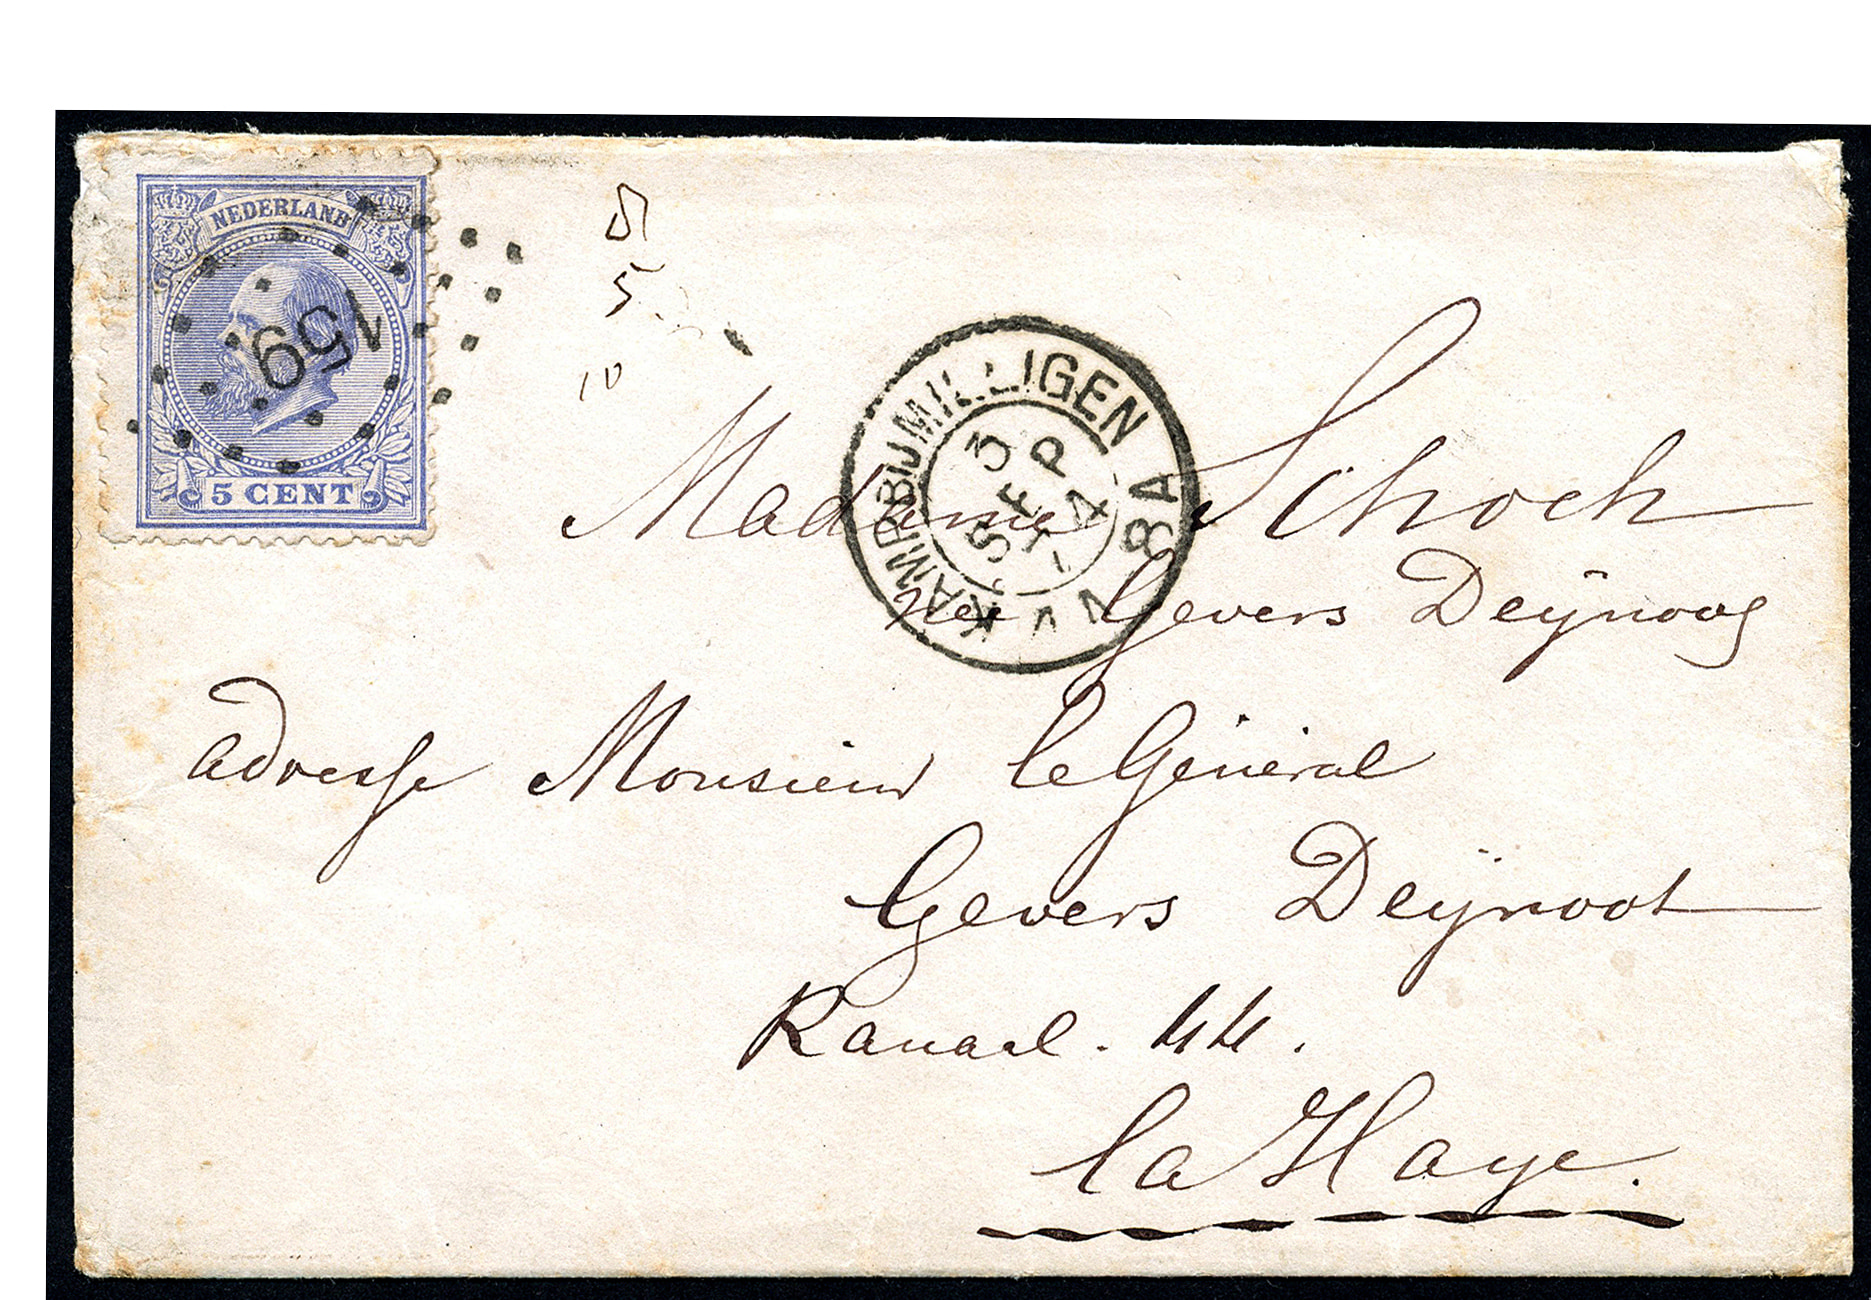 NEDERLAND
159
5 CENT
5
10
KAMPBIJMILLIGEN
3
SEP
4
8A
Madame Schoch
née Gevers Deÿnoog
adresse Monsieur le Général
Gevers Deÿnoot
Kanaal. 44.
la Haye.